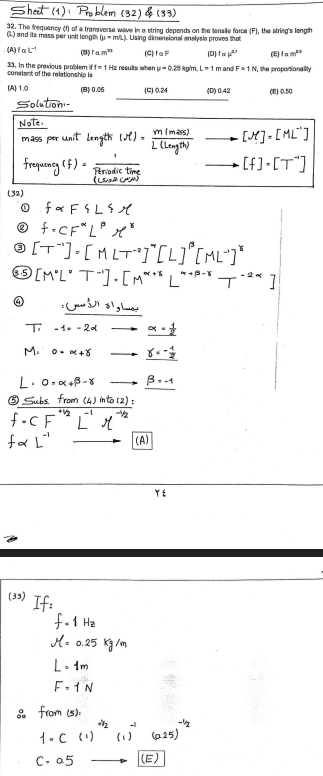 Sheet (1): Problem (32) & (33)
32. The frequency (f) of a transverse wave in a string depends on the tensile force (F), the string's length
(L) and its mass per unit length (μ = m/L). Using dimensional analysis proves that
(A) f α L⁻¹ (B) f α m⁰·⁵ (C) f α F (D) f α μ⁰·⁷ (E) f α m⁰·⁸
33. In the previous problem if f = 1 Hz results when μ = 0.25 kg/m, L = 1 m and F = 1 N, the proportionality
constant of the relationship is
(A) 1.0 (B) 0.05 (C) 0.24 (D) 0.42 (E) 0.50
Solution:-
Note:
mass per unit Length (μ) = m (mass) / L (Length) → [μ] = [ML⁻¹]
frequency (f) = 1 / Periodic time → [f] = [T⁻¹]
(32)
① f ∝ F & L & μ
② f = C F^α L^β μ^γ
③ [T⁻¹] = [MLT⁻²]^α [L]^β [ML⁻¹]^γ
③.5 [M⁰L⁰ T⁻¹] = [M^α+γ L^α+β-γ T^-2α]
④ بمساواة الأسس:
T: -1 = -2α → α = 1/2
M: 0 = α+γ → γ = -1/2
L: 0 = α+β-γ → β = -1
⑤ Subs. from (4) into (2):
f = C F^+1/2 L^-1 μ^-1/2
f ∝ L⁻¹ → (A)
٢٤
(33) If:
f = 1 Hz
μ = 0.25 kg/m
L = 1m
F = 1 N
∴ from (5):
1 = C (1)^+1/2 (1)^-1 (0.25)^-1/2
C = 0.5 → (E)